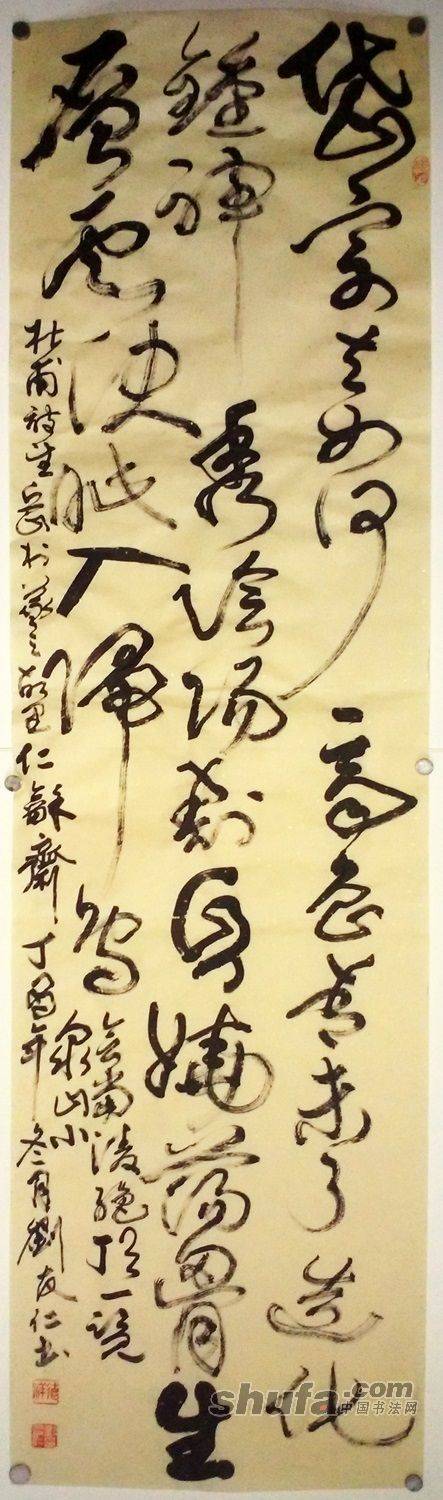 岱宗夫如何齊魯青未了造化
鍾神秀陰陽割昏曉蕩胷生
層雲決眥入歸鳥
會當淩絕頂一覽
衆山小
杜甫詩望岳於羲之故里仁龢齋丁酉年冬月劉友仁書
shufa.com
中国书法网